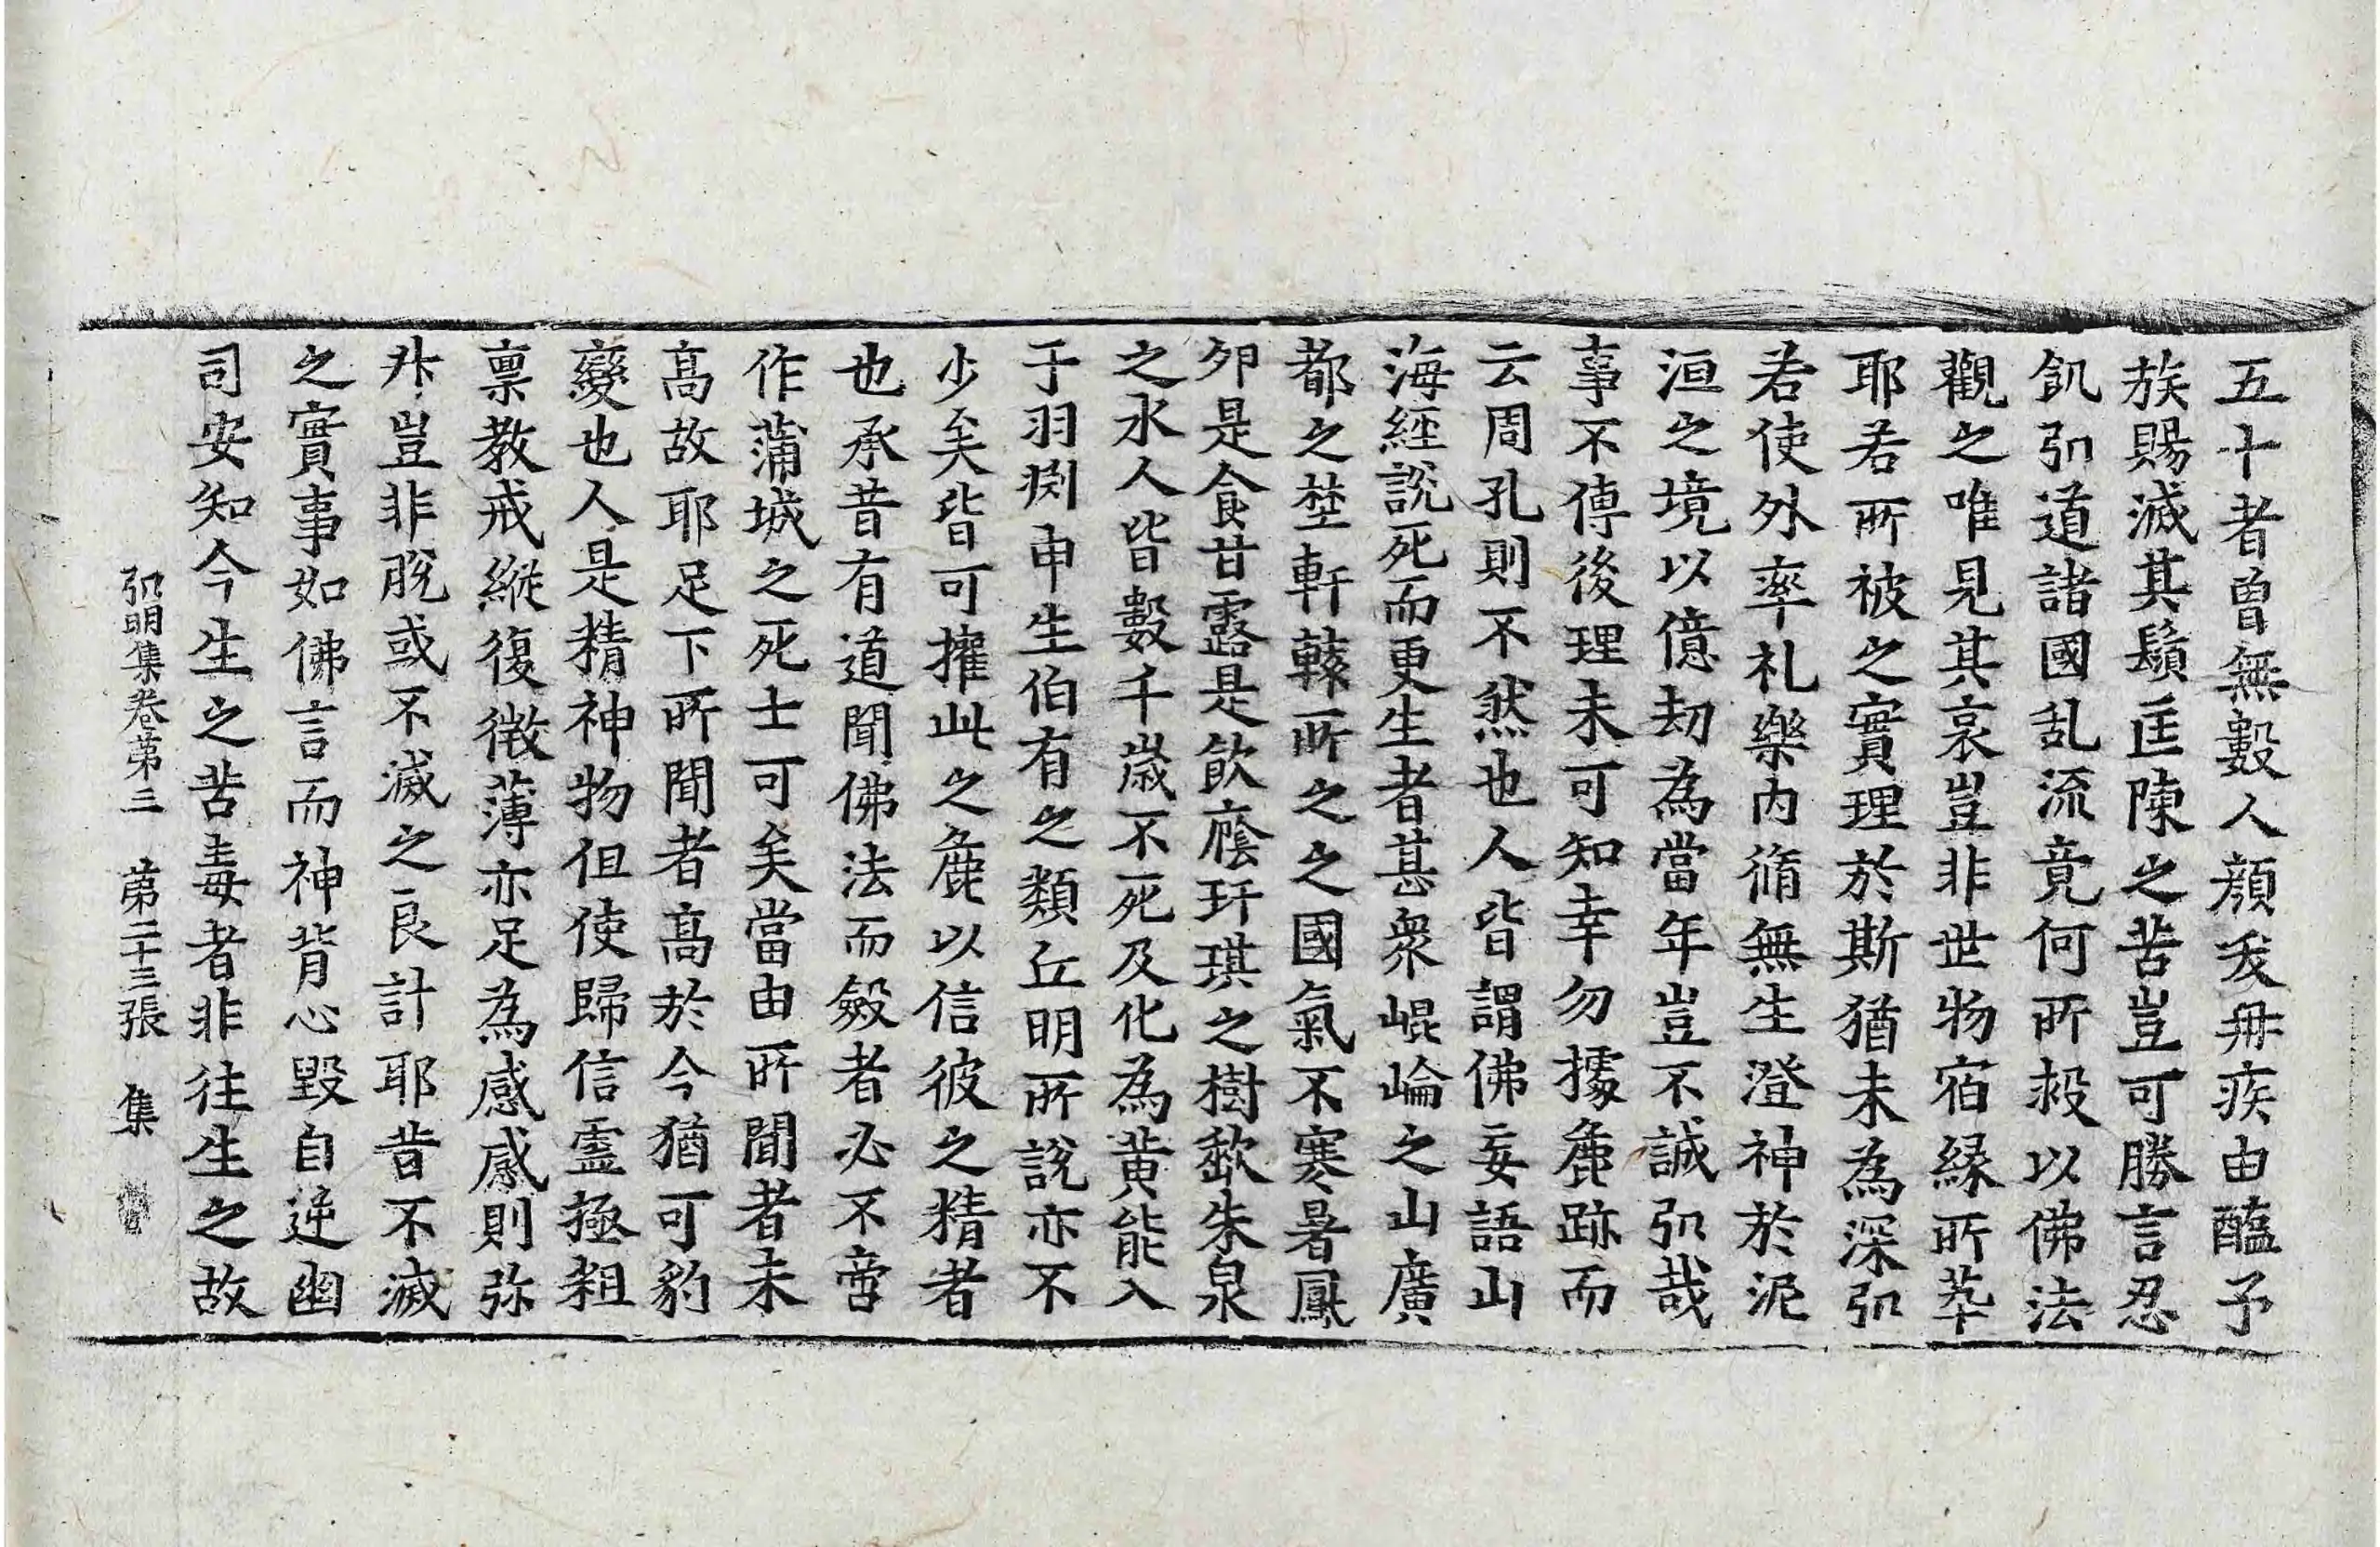 五十者曽無數人顔夭冉疾由醢予
族賜滅其鬚匡陳之苦豈可勝言忍
飢弘道諸國乱流竟何所救以佛法
觀之唯見其哀豈非世物宿縁所萃
耶若所被之實理於斯猶未為深弘
若使外率礼樂内脩無生澄神於泥
洹之境以億劫為當年豈不誠弘哉
事不傳後理未可知幸勿據麁跡而
云周孔則不然也人皆謂佛妄語山
海經說死而更生者甚衆崐崘之山廣
都之埜軒轅所之之國氣不寒暑鳳
卵是食甘露是飲廕玕琪之樹歃朱泉
之水人皆數千歳不死及化為黄能入
于羽淵申生伯有之類丘明所說亦不
少矣皆可擢此之麁以信彼之精者
也承昔有道聞佛法而斂者必不啻
作蒲城之死士可矣當由所聞者未
高故耶足下所聞者高於今猶可豹
變也人是精神物但使歸信靈極粗
禀教戒縱復微薄亦足為感感則弥
升豈非脫或不滅之良計耶昔不滅
之實事如佛言而神背心毀自逆幽
司安知今生之苦毒者非往生之故
弘明集卷第三　第二十三張　集